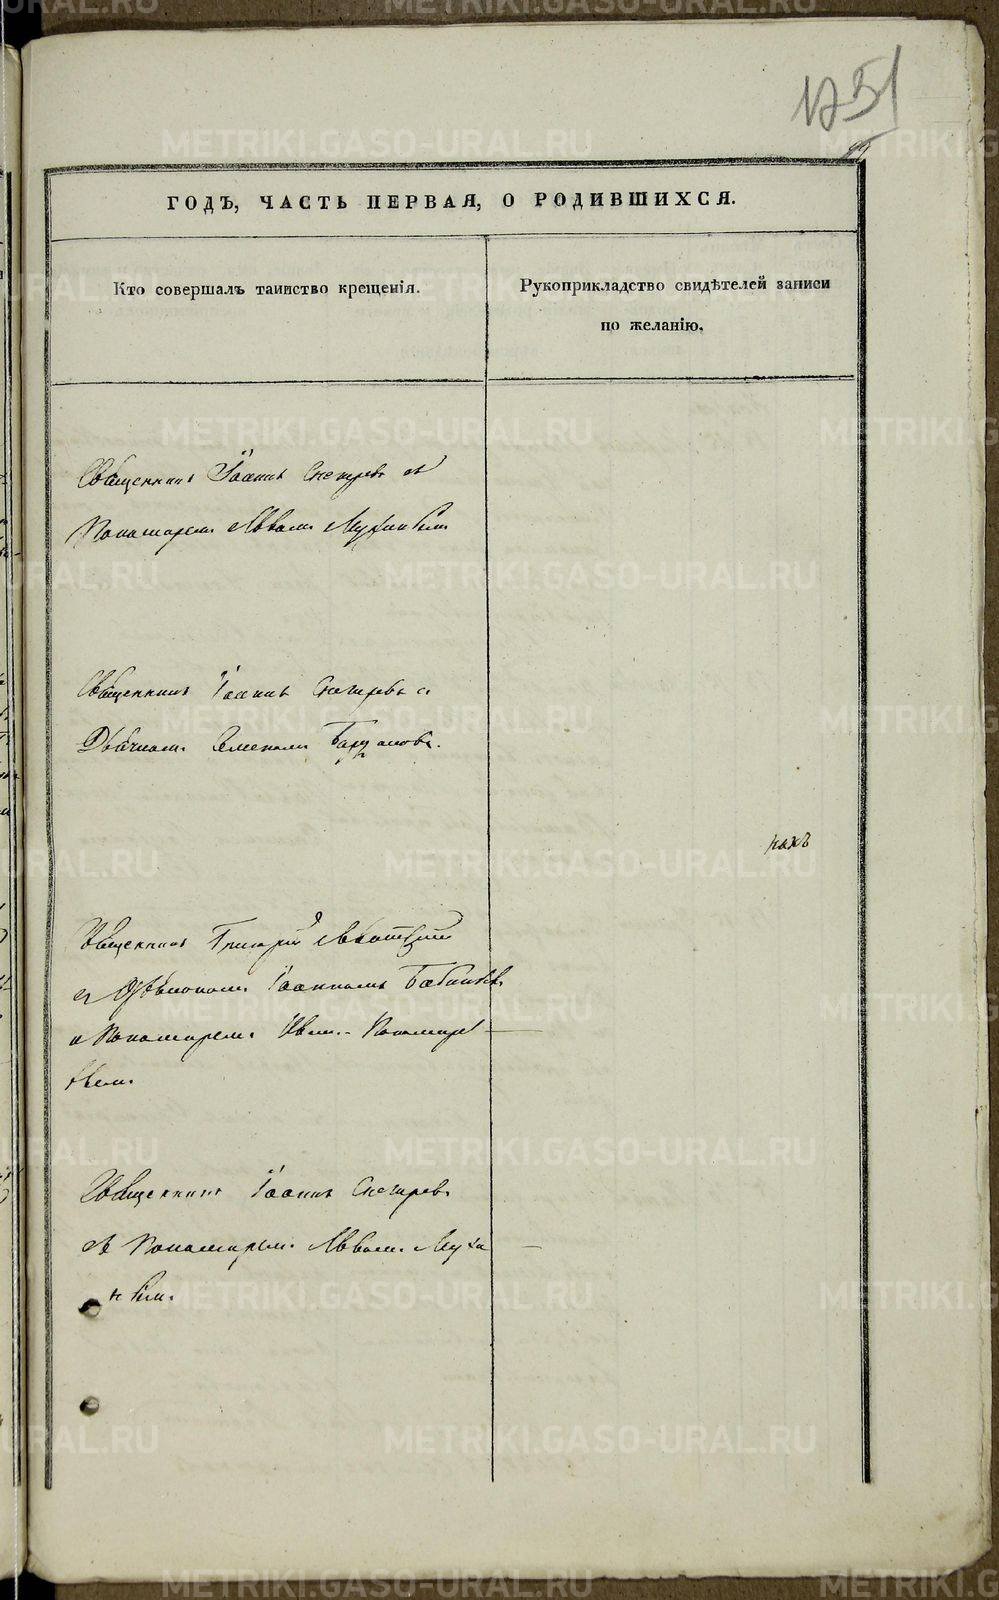 1751
99
ГОДЪ, ЧАСТЬ ПЕРВАЯ, О РОДИВШИХСЯ.
Кто совершалъ таинство крещенія.
Рукоприкладство свидѣтелей записи
по желанію.
Священникъ Іоаннъ Снегирев съ
Пономарем Аввам Мухиным
Священникъ Іоаннъ Снегиревъ с
Дьячком Семеном
Священникъ Григорій
съ Діакономъ Іоанномъ
и Пономарем Ив. Пономаре
вым.
Священникъ Іоаннъ Снегирев
съ Пономарем Аввам Мухи
ным.
METRIKI.GASO-URAL.RU